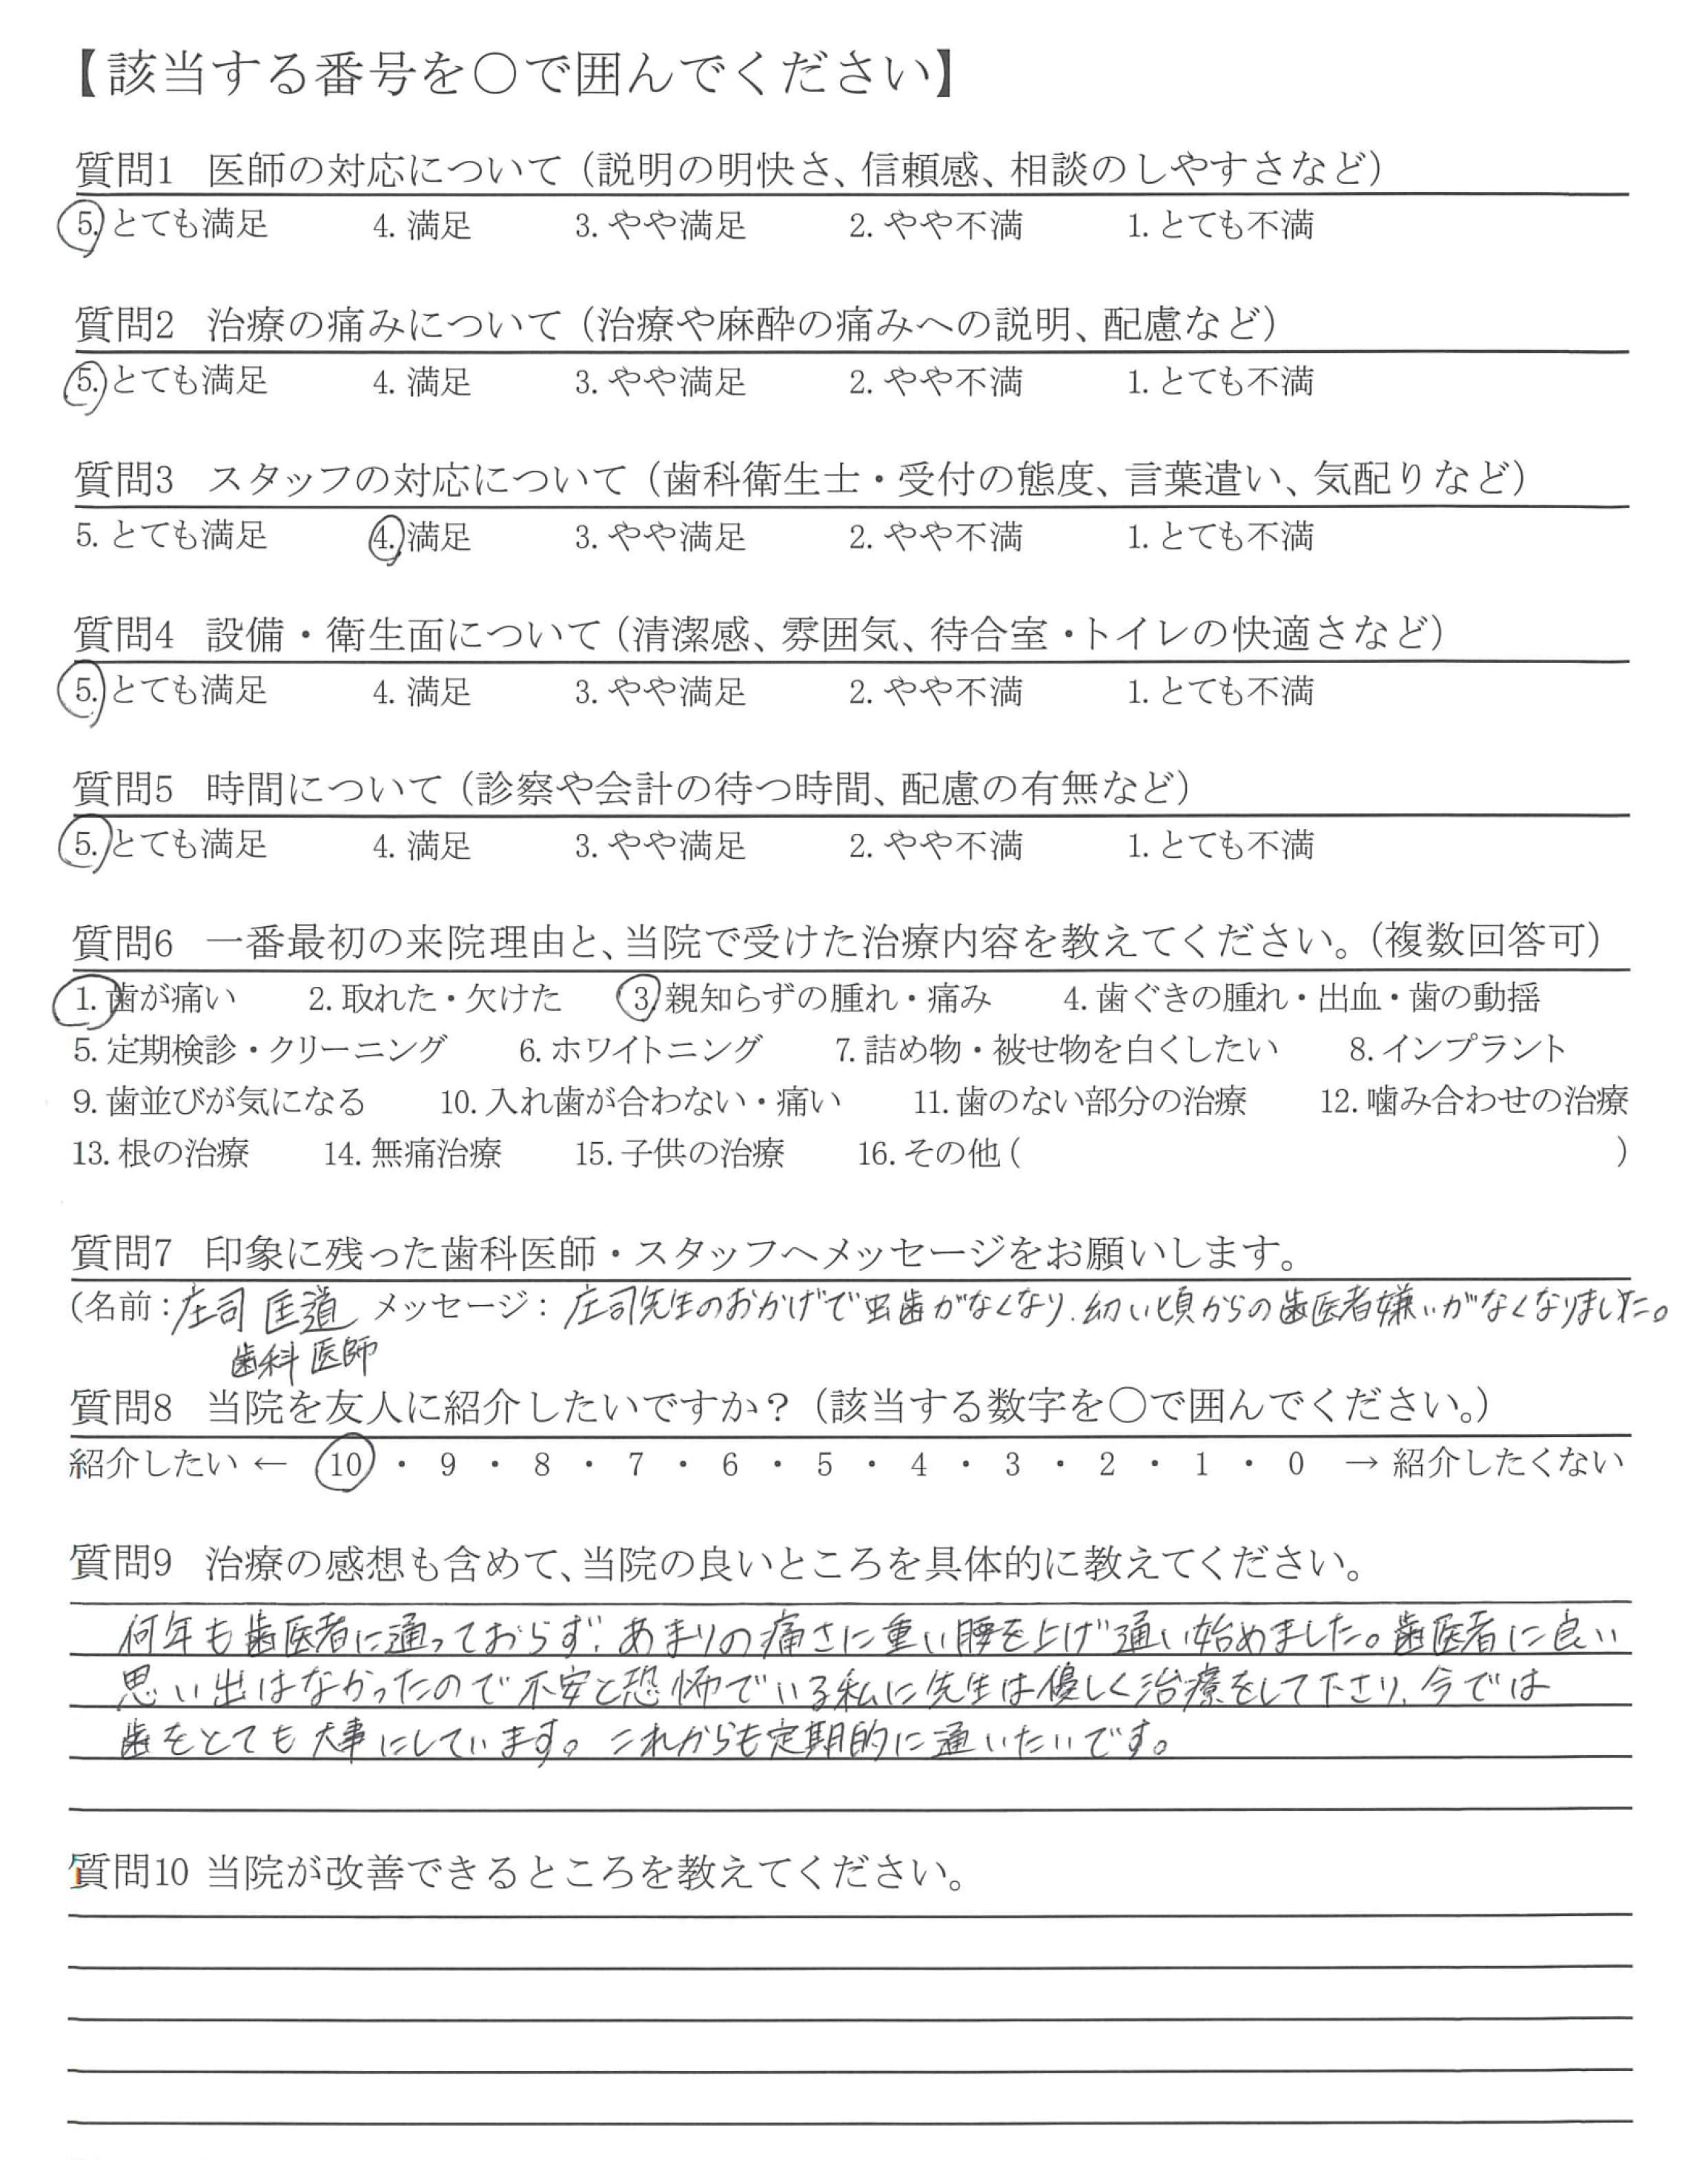 【該当する番号を〇で囲んでください】
質問1 医師の対応について（説明の明快さ、信頼感、相談のしやすさなど）
5. とても満足 4. 満足 3. やや満足 2. やや不満 1. とても不満
質問2 治療の痛みについて（治療や麻酔の痛みへの説明、配慮など）
5. とても満足 4. 満足 3. やや満足 2. やや不満 1. とても不満
質問3 スタッフの対応について（歯科衛生士・受付の態度、言葉遣い、気配りなど）
5. とても満足 4. 満足 3. やや満足 2. やや不満 1. とても不満
質問4 設備・衛生面について（清潔感、雰囲気、待合室・トイレの快適さなど）
5. とても満足 4. 満足 3. やや満足 2. やや不満 1. とても不満
質問5 時間について（診察や会計の待つ時間、配慮の有無など）
5. とても満足 4. 満足 3. やや満足 2. やや不満 1. とても不満
質問6 一番最初の来院理由と、当院で受けた治療内容を教えてください。（複数回答可）
1. 歯が痛い 2. 取れた・欠けた 3. 親知らずの腫れ・痛み 4. 歯ぐきの腫れ・出血・歯の動揺
5. 定期検診・クリーニング 6. ホワイトニング 7. 詰め物・被せ物を白くしたい 8. インプラント
9. 歯並びが気になる 10. 入れ歯が合わない・痛い 11. 歯のない部分の治療 12. 噛み合わせの治療
13. 根の治療 14. 無痛治療 15. 子供の治療 16. その他（ ）
質問7 印象に残った歯科医師・スタッフへメッセージをお願いします。
（名前：庄司 匡道 メッセージ：庄司先生のおかげで虫歯がなくなり、幼い頃からの歯医者嫌いがなくなりました。
歯科医師
質問8 当院を友人に紹介したいですか？（該当する数字を〇で囲んでください。）
紹介したい ← 10 ・ 9 ・ 8 ・ 7 ・ 6 ・ 5 ・ 4 ・ 3 ・ 2 ・ 1 ・ 0 → 紹介したくない
質問9 治療の感想も含めて、当院の良いところを具体的に教えてください。
何年も歯医者に通っておらず、あまりの痛さに重い腰を上げ通い始めました。歯医者に良い
思い出はなかったので不安と恐怖でいる私に先生は優しく治療をして下さり、今では
歯をとても大事にしています。これからも定期的に通いたいです。
質問10 当院が改善できるところを教えてください。